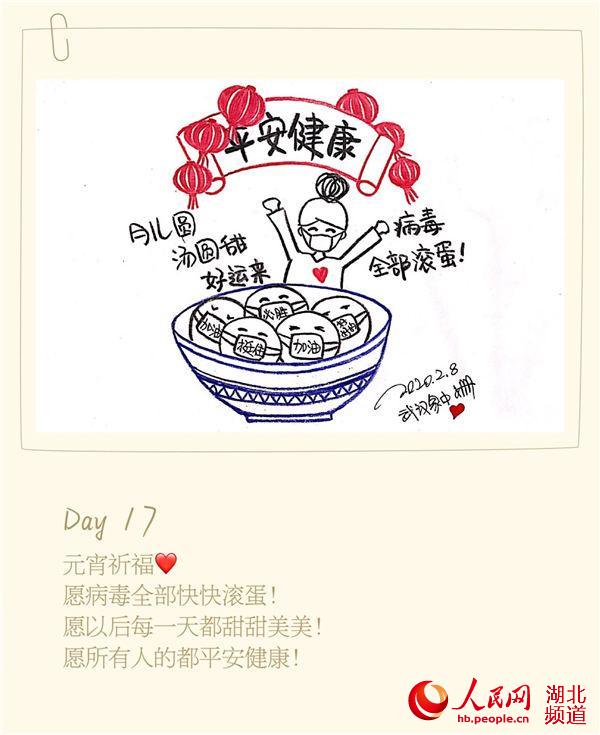 平安健康
月儿圆
汤圆甜
好运来
病毒
全部滚蛋!
必胜
加油
挺住
加油
2020.2.8
武汉家中 姗
Day 17
元宵祈福❤
愿病毒全部快快滚蛋!
愿以后每一天都甜甜美美!
愿所有人的都平安健康!
人民网
hb.people.cn
湖北
频道